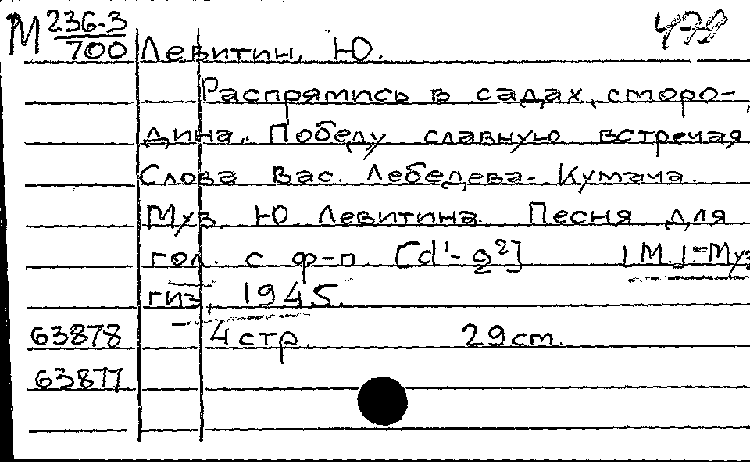 М 236-3/700 Левитин, Ю.
Распрямись в садах, сморо-
дина. Победу славную встречая
Слова Вас. Лебедева-Кумача.
Муз. Ю. Левитина. Песня для
гол. с ф-п. [d¹-g²] [М.]-Муз
гиз, 1945.
63878 4 стр. 29 cm.
63877